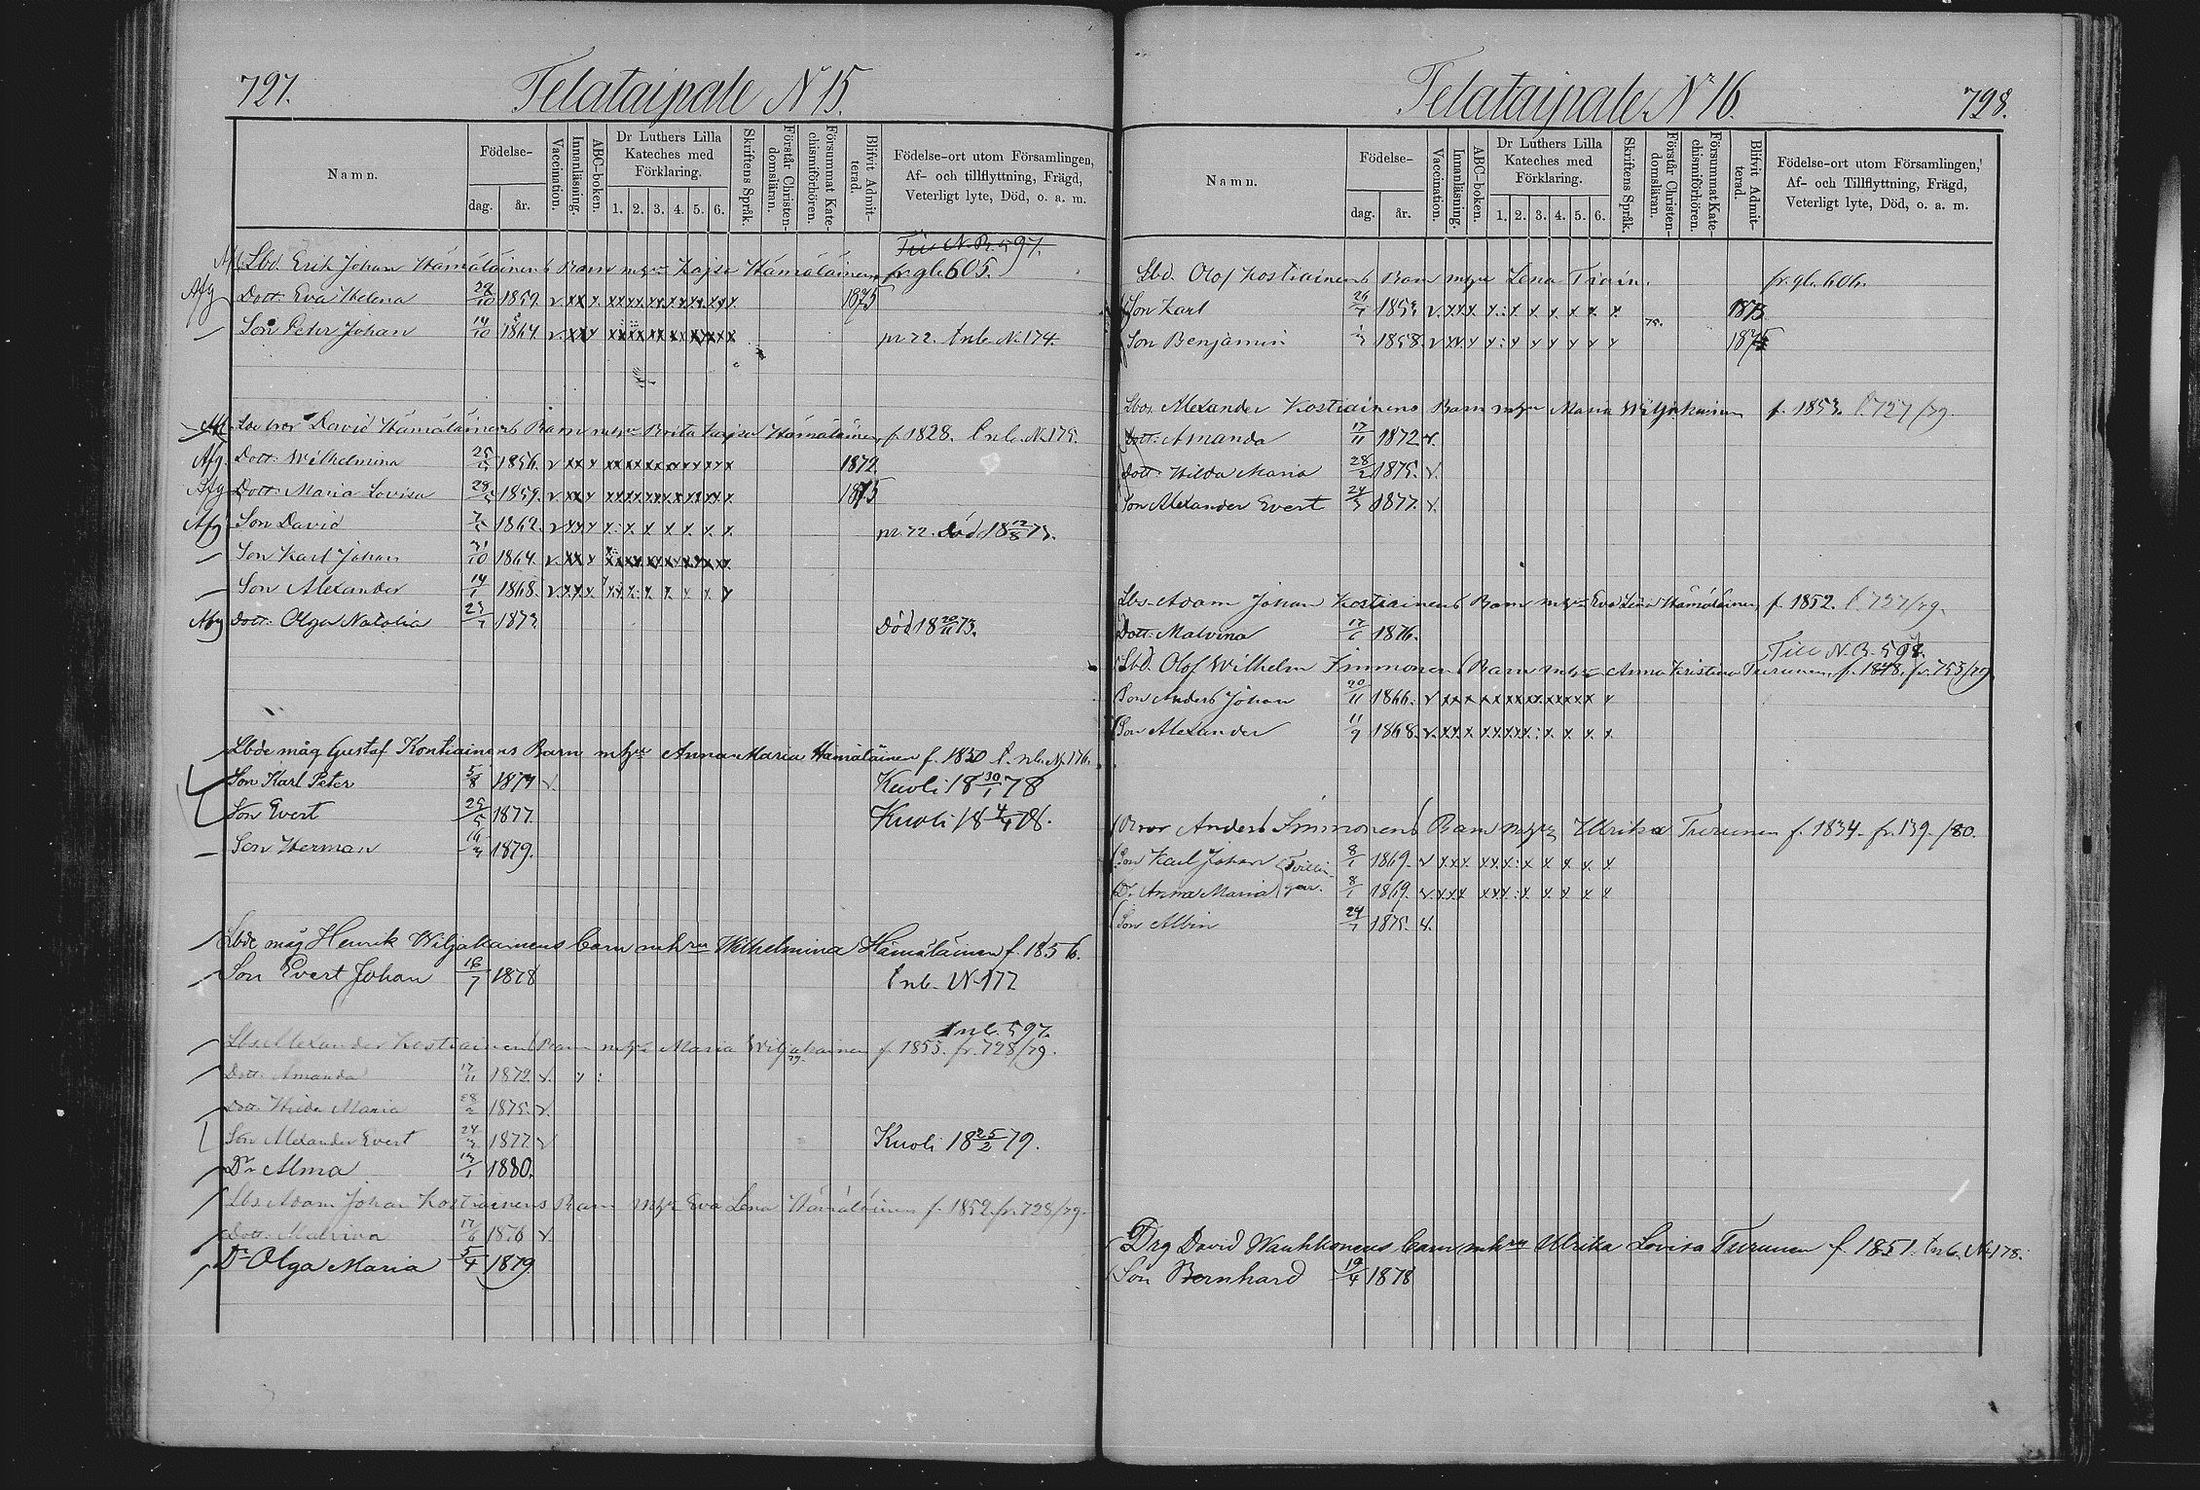 727.
Telataipale N 15.
Namn.
Födelse-
dag.
år.
Vaccination.
Innanläsning.
ABC-boken.
Dr Luthers Lilla
Kateches med
Förklaring.
1. 2. 3. 4. 5. 6.
Skriftens Språk.
Förstår Christen-
domsläran.
Försummat Kate-
chismiförhören.
Blifvit Admit-
terad.
Födelse-ort utom Församlingen,
Af- och tillflyttning, Frägd,
Veterligt lyte, Död, o. a. m.
Till N. B. 597.
Lbd. Erik Johan Hämäläinens Barn m hru Kajsa Hämäläinen fr. gb. 605.
Afg Dott. Eva Helena 1859. v xx x
Son Peter Johan 14/10 1864 v xx x pr 72. Inb. N. 174.
David Hämäläinens Barn m hru Brita Kajsa Hämäläinen f. 1828. Inb. N. 175.
Afg. Dott. Wilhelmina 1856. v xx x 1872
Afg Dott. Maria Lovisa 1859. v xx x 1875
Afg Son David 1862. v xx x x : x x x x. x. x. pr. 72. död
Son Karl Johan 1864. v. xx x
Son Alexander 14/1 1868. v. x x x
Afg Dott. Olga Natalia 1873. Död
Lbde måg Gustaf Kontiainens Barn m hru Anna Maria Hämäläinen f. 1850 Inb. N. 176.
Son Karl Peter 5/8 1874 v. Kuoli 18 30/1 78
Son Evert 1877. Kuoli 18 4/4 78.
Son Herman 1879.
Lbde måg Henrik Wiljakainens barn m hru Wilhelmina Hämäläinen f. 1856.
Son Evert Johan 16/7 1878 Inb. N 177
Inb. 597.
Alexander Kostiainens Barn m hru Maria Wiljakainen f. 1853. fr. 728/79.
Dott. Amanda 17/11 1872. v. x :
Dott. Hilda Maria 28/2 1875. v.
Son Alexander Evert 24/3 1877. v Kuoli 18 25/2 79.
Dr Alma 1880.
Lbs Adam Johan Kostiainens Barn m hru Eva Lena Hämäläinen f. 1852. fr. 728/79.
Dott. Malvina 17/6 1876 v.
Dr Olga Maria 5/4 1879
Telataipale N 16.
728.
Namn.
Födelse-
dag.
år.
Vaccination.
Innanläsning.
ABC-boken.
Dr Luthers Lilla
Kateches med
Förklaring.
1. 2. 3. 4. 5. 6.
Skriftens Språk.
Förstår Christen-
domsläran.
Försummat Kate-
chismiförhören.
Blifvit Admit-
terad.
Födelse-ort utom Församlingen,
Af- och Tillflyttning, Frägd,
Veterligt lyte, Död, o. a. m.
Lbd. Olof Kostiainens Barn m hru Lena fr. gb. 606.
Son Karl 1853 v. x x x x : x x x. x. x. x. 1873
Son Benjamin 1858. v xx x x : x x x x x x 75.
Lbos Alexander Kostiainens Barn m hru Maria Wiljakainen f. 1853. t. 727/79.
Dott. Amanda 17/11 1872 v.
Dott. Hilda Maria 28/2 1875. v.
Son Alexander Evert 24/3 1877. v.
Lbs. Adam Johan Kostiainens Barn m hru Eva Lena Hämäläinen f. 1852. t. 727/79.
Dott. Malvina 17/6 1876.
Till N. B. 598.
Lbd. Olof Wilhelm Immonens Barn m hru Anna Kristina Turunen, f. 1848, fr. 753/79
Son Anders Johan 20/11 1866. v xx x
Son Alexander 11/9 1868. v. xx x
Anders Immonens Barn m hru Ulrika Turunen f. 1834. fr. 139/80.
Son Karl Johan Tvillin- 8/1 1869. v x x x. xxx : x x x. x. x.
Dr. Anna Maria gar. 8/1 1869. v. xxx xxx : x x x. x x
Son Albin 1875. v.
Drg David Wauhkonens barn m hru Ulrika Lovisa Turunen f. 1851. Inb. N. 178.
Son Bernhard 19/4 1878